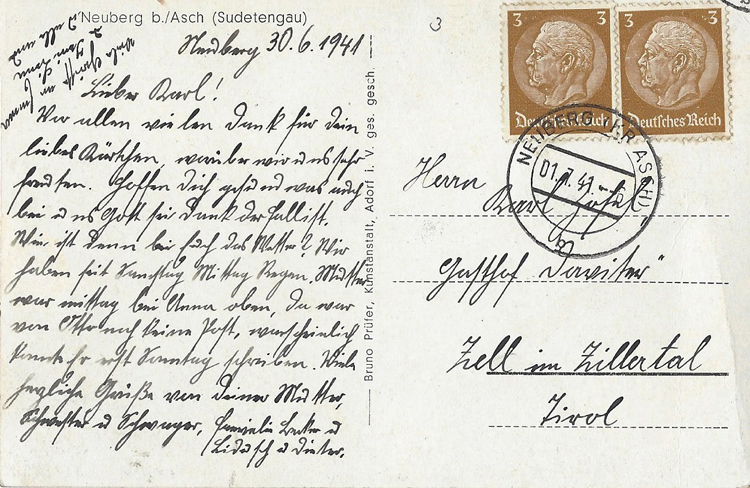 Neuberg b./Asch (Sudetengau)
Neuberg 30.6.1941
Lieber Karl!
Vor allen vielen Dank für dein
liebes Kärtchen, worüber wir uns sehr
freuten. Hoffen Dich gesund was auch
bei uns Gott sei Dank der Fall ist.
Wie ist denn bei Euch das Wetter? Wir
haben seit Samstag Mittag Regen. Mutter
war mittag bei Anna oben, da war
von Otto noch keine Post, warscheinlich
konnte er erst Sonntag schreiben. Viele
herzliche Grüße von deiner Mutter,
Schwester u Schwager, Familie u
u Dieter.
Viele Grüße
Bruno Prüfer, Kunstanstalt, Adorf i. V. ges. gesch.
3
3 3
Deutsches Reich
3 3
Deutsches Reich
NEUBERG (KR ASCH)
01.7.41
b
Herrn
Karl
Gasthof
Zell im Zillertal
Tirol